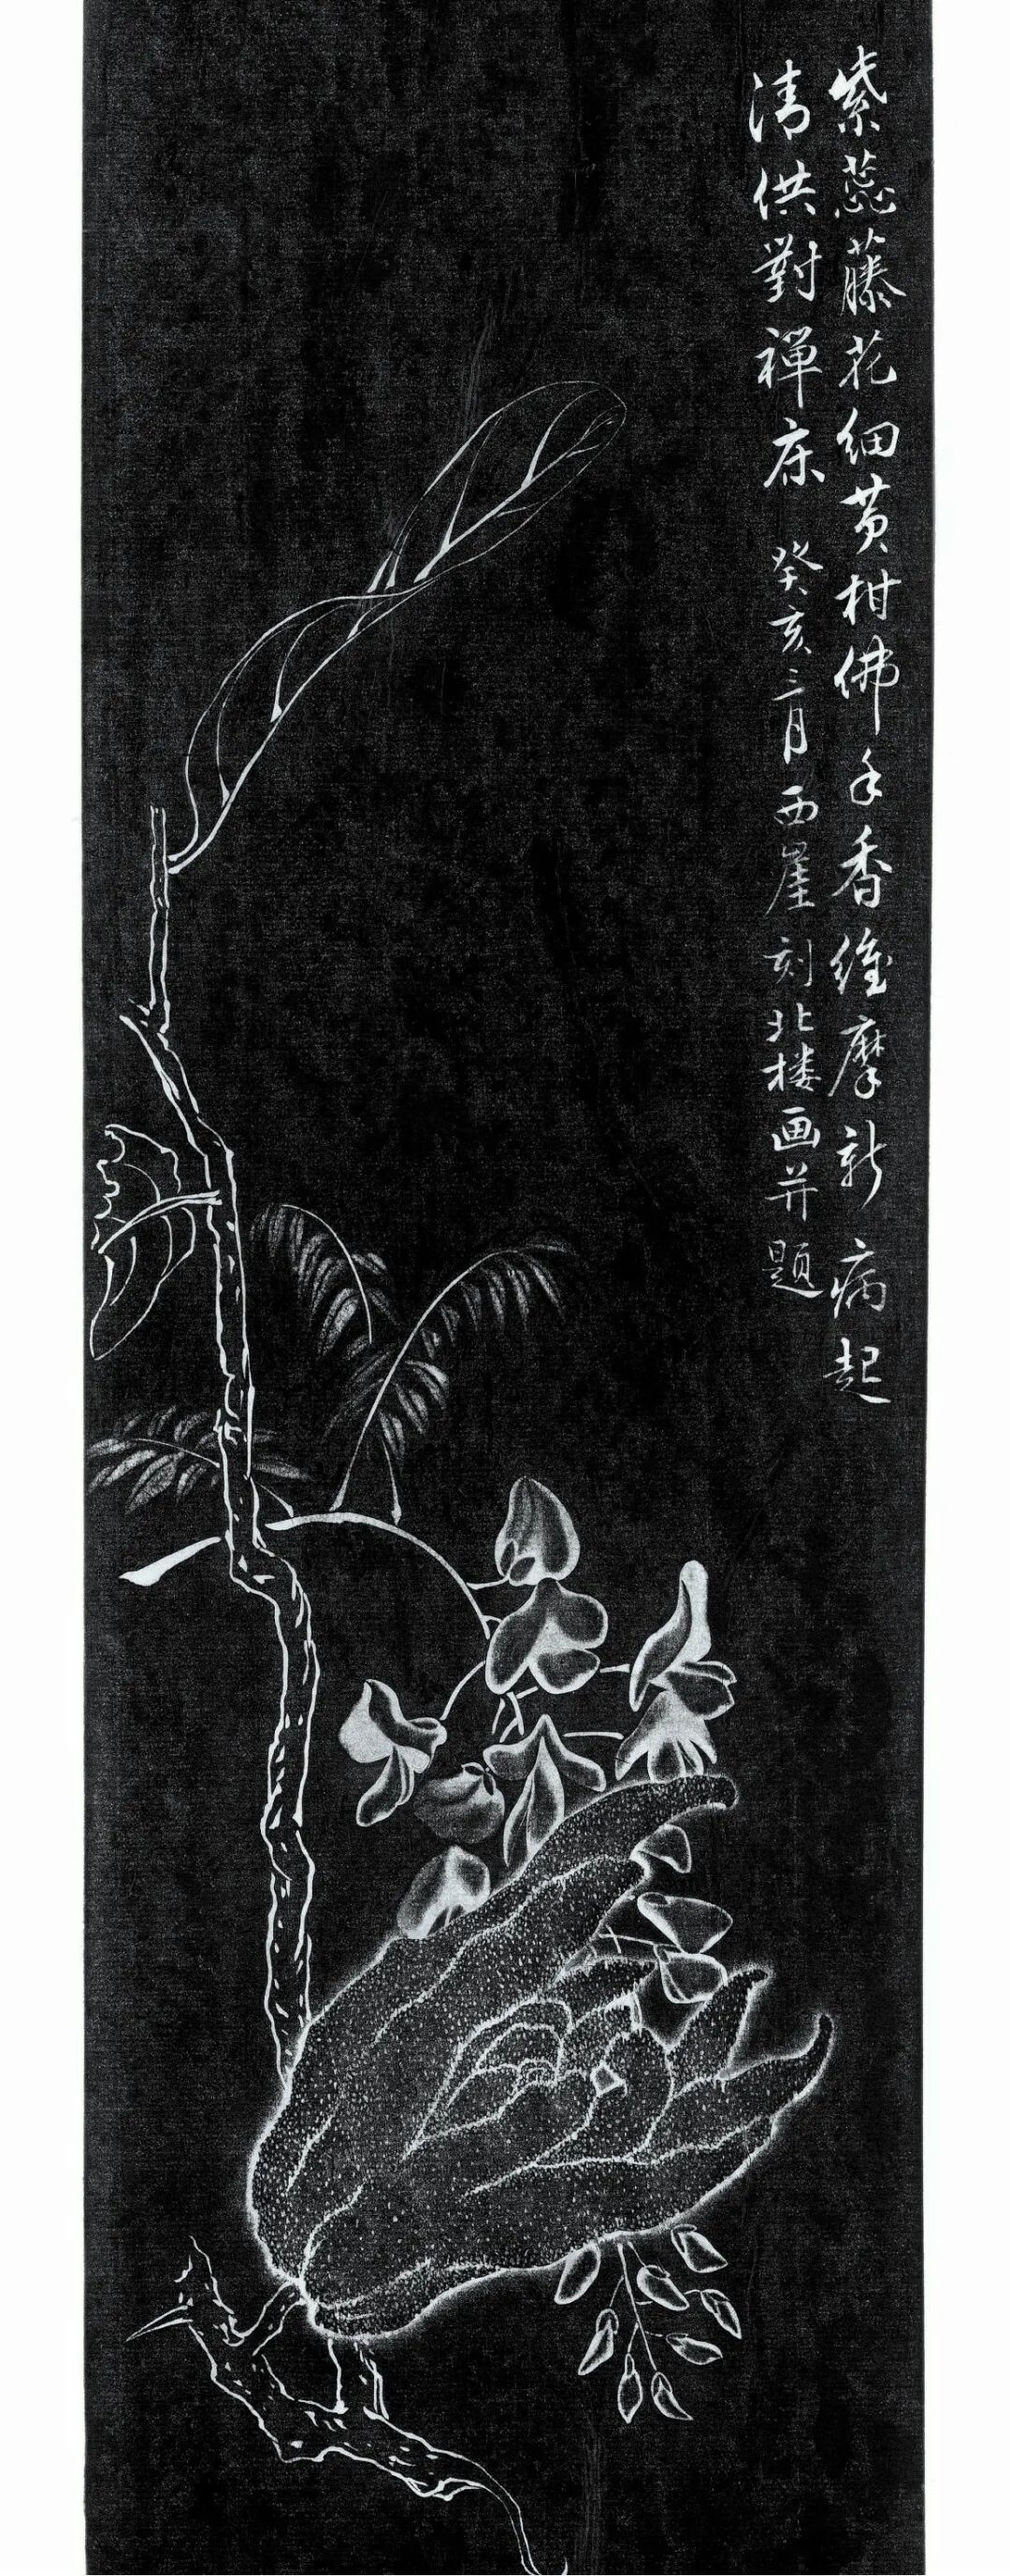 紫蕊藤花細黄柑佛手香維摩新病起
清供對禪床 癸亥三月西崖刻北楼画并題